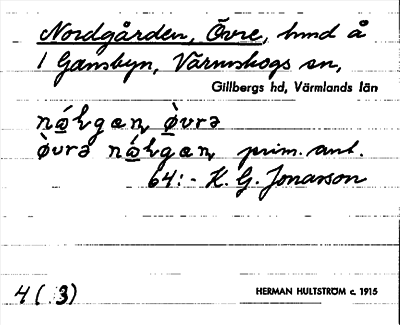 Nordgården, Övre, hmd å
1 Gamsbyn, Värmskogs sn,
Gillbergs hd, Värmlands län
prim. ant.
64:- K. G. Jonarson
4 (. 3)
HERMAN HULTSTRÖM c. 1915